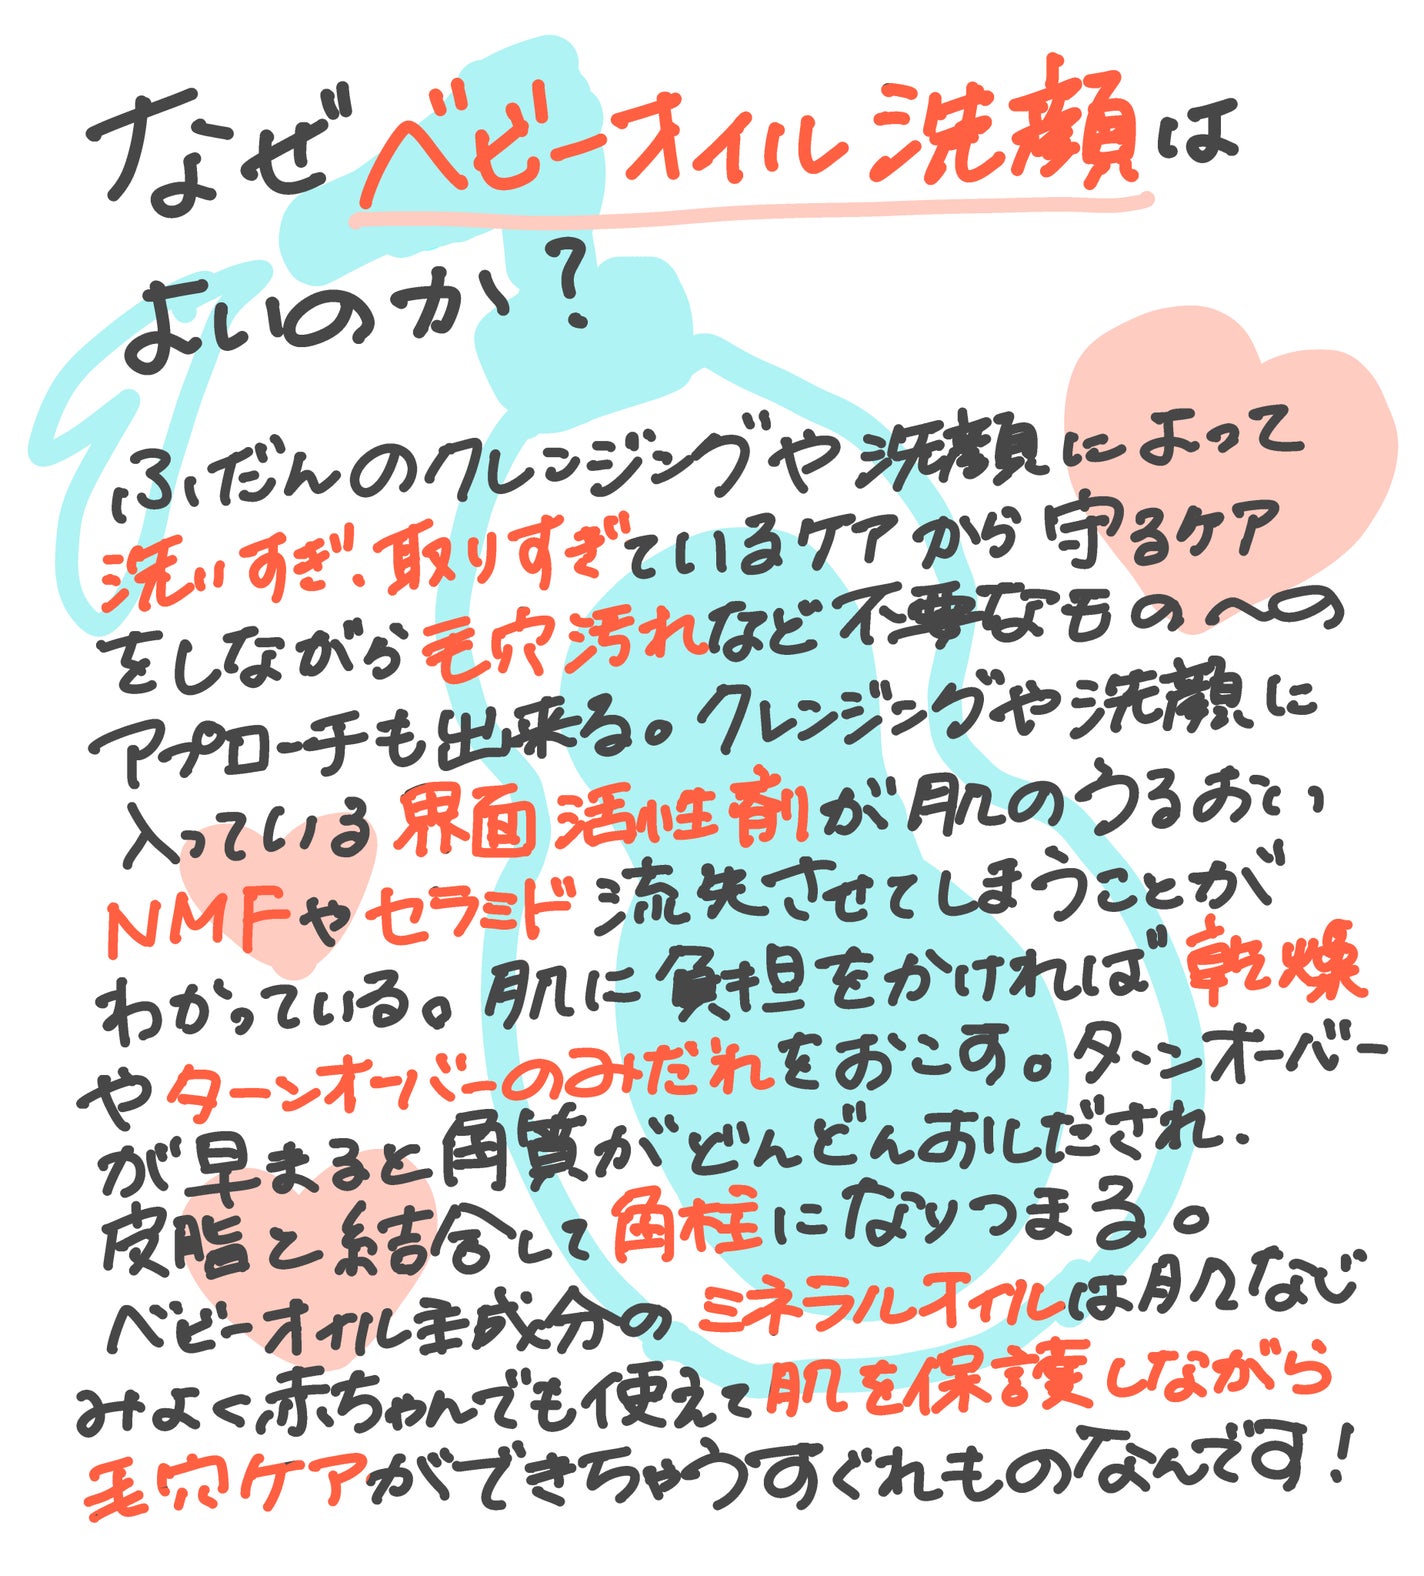 なぜベビーオイル洗顔は
よいのか？
ふだんのクレンジングや洗顔によって
洗いすぎ、取りすぎているケアから守るケア
をしながら毛穴汚れなど不要なものへの
アプローチも出来る。クレンジングや洗顔に
入っている界面活性剤が肌のうるおい
NMFやセラミド流失させてしまうことが
わかっている。肌に負担をかければ乾燥
やターンオーバーのみだれをおこす。ターンオーバー
が早まると角質がどんどんおしだされ、
皮脂と結合して角柱になりつまる。
ベビーオイル主成分のミネラルオイルは肌なじ
みよく赤ちゃんでも使えて肌を保護しながら
毛穴ケアができちゃうすぐれものなんです！